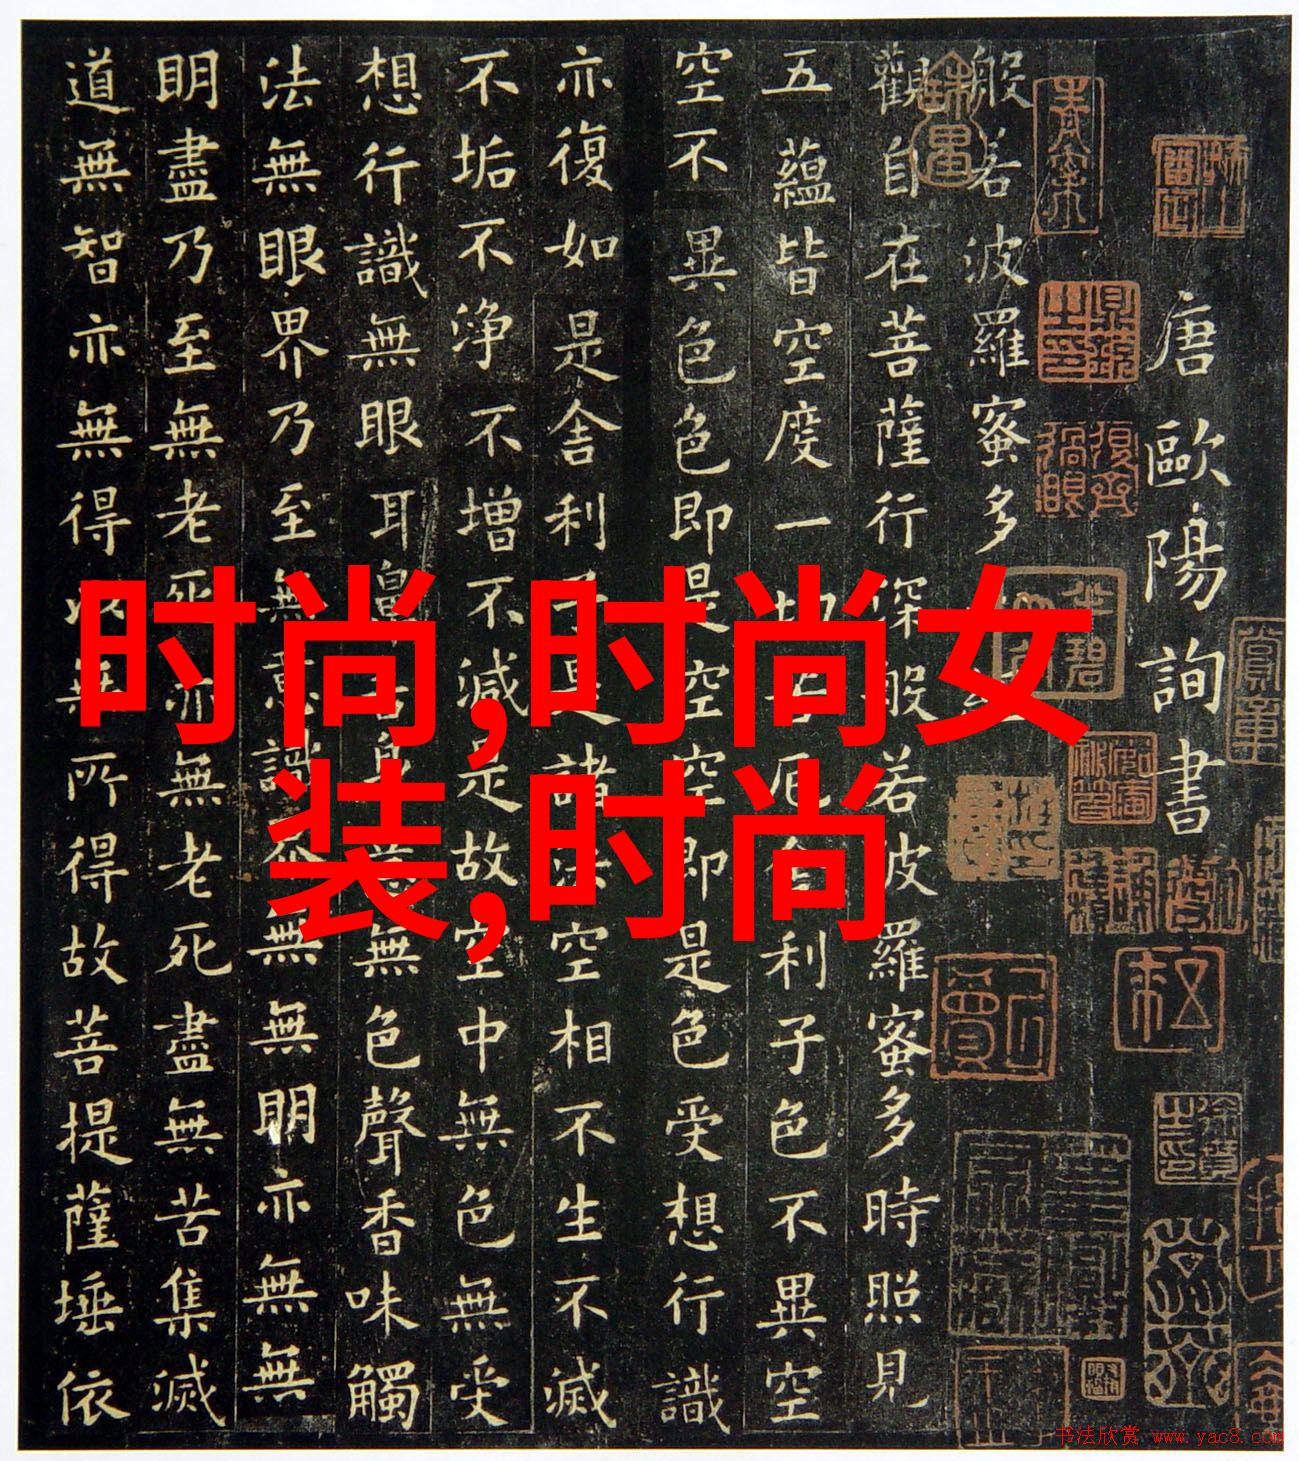 唐歐陽詢書
般若波羅蜜多心經
觀自在菩薩行深般若波羅蜜多時照見
五蘊皆空度一切苦厄舍利子色不異空
空不異色色即是空空即是色受想行識
亦復如是舍利子是諸法空相不生不滅
不垢不淨不增不減是故空中無色無受
想行識無眼耳鼻舌身意無色聲香味觸
法無眼界乃至無意識界無無明亦無無
明盡乃至無老死亦無老死盡無苦集滅
道無智亦無得以無所得故菩提薩埵依
时尚,时尚女
装,时尚
书法欣赏 www.yac8.com